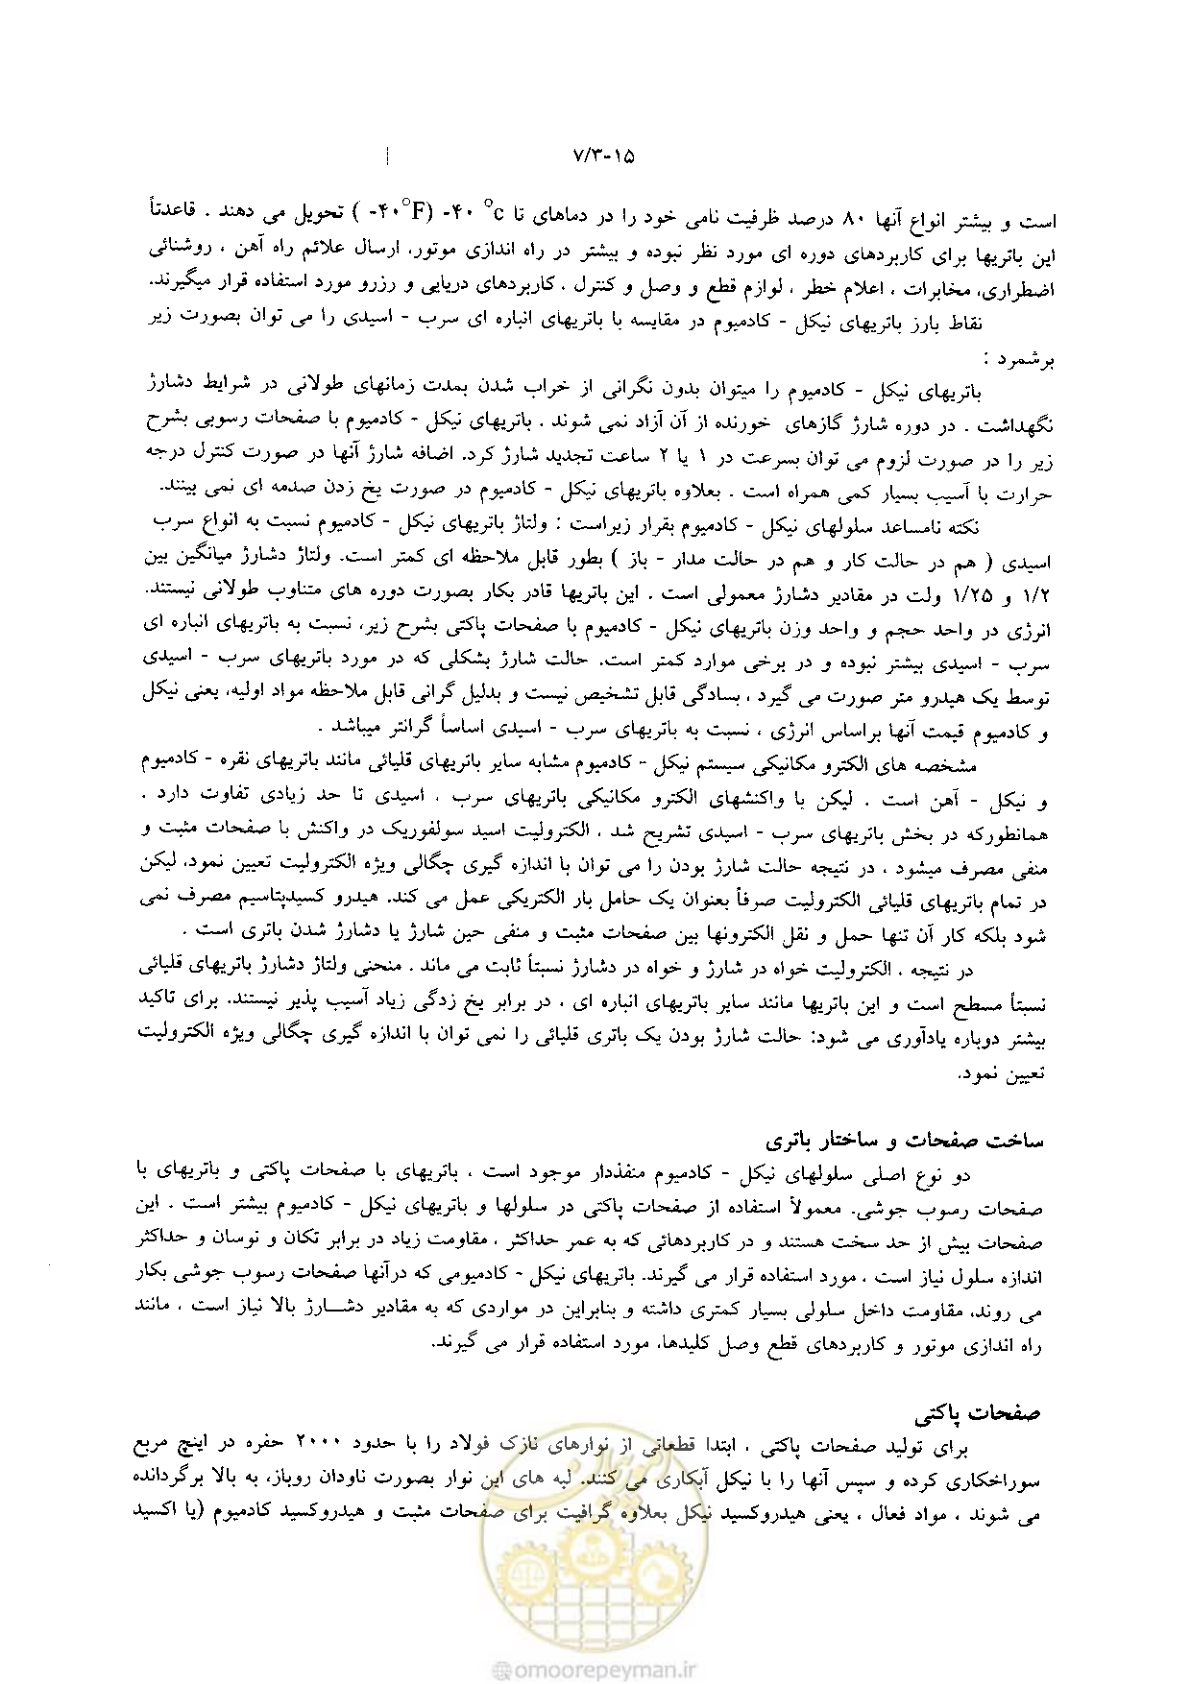 ۷/۳-۱۵
است و بیشتر انواع آنها ۸۰ درصد ظرفیت نامی خود را در دماهای تا ۴۰ °c- (۴۰°F- ) تحویل می دهند . قاعدتاً
این باتریها برای کاربردهای دوره ای مورد نظر نبوده و بیشتر در راه اندازی موتور، ارسال علائم راه آهن ، روشنائی
اضطراری، مخابرات ، اعلام خطر ، لوازم قطع و وصل و کنترل ، کاربردهای دریایی و رزرو مورد استفاده قرار میگیرند.
نقاط بارز باتریهای نیکل - کادمیوم در مقایسه با باتریهای انباره ای سرب - اسیدی را می توان بصورت زیر
برشمرد :
باتریهای نیکل - کادمیوم را میتوان بدون نگرانی از خراب شدن بمدت زمانهای طولانی در شرایط دشارژ
نگهداشت . در دوره شارژ گازهای خورنده از آن آزاد نمی شوند . باتریهای نیکل - کادمیوم با صفحات رسوبی بشرح
زیر را در صورت لزوم می توان بسرعت در ۱ یا ۲ ساعت تجدید شارژ کرد. اضافه شارژ آنها در صورت کنترل درجه
حرارت با آسیب بسیار کمی همراه است . بعلاوه باتریهای نیکل - کادمیوم در صورت یخ زدن صدمه ای نمی بینند.
نکته نامساعد سلولهای نیکل - کادمیوم بقرار زیراست : ولتاژ باتریهای نیکل - کادمیوم نسبت به انواع سرب
اسیدی ( هم در حالت کار و هم در حالت مدار - باز ) بطور قابل ملاحظه ای کمتر است. ولتاژ دشارژ میانگین بین
۱/۲ و ۱/۲۵ ولت در مقادیر دشارژ معمولی است . این باتریها قادر بکار بصورت دوره های متناوب طولانی نیستند.
انرژی در واحد حجم و واحد وزن باتریهای نیکل - کادمیوم با صفحات پاکتی بشرح زیر، نسبت به باتریهای انباره ای
سرب - اسیدی بیشتر نبوده و در برخی موارد کمتر است. حالت شارژ بشکلی که در مورد باتریهای سرب - اسیدی
توسط یک هیدرو متر صورت می گیرد ، بسادگی قابل تشخیص نیست و بدلیل گرانی قابل ملاحظه مواد اولیه، یعنی نیکل
و کادمیوم قیمت آنها براساس انرژی ، نسبت به باتریهای سرب - اسیدی اساساً گرانتر میباشد .
مشخصه های الکترو مکانیکی سیستم نیکل - کادمیوم مشابه سایر باتریهای قلیائی مانند باتریهای نقره - کادمیوم
و نیکل - آهن است . لیکن با واکنشهای الکترو مکانیکی باتریهای سرب ، اسیدی تا حد زیادی تفاوت دارد .
همانطورکه در بخش باتریهای سرب - اسیدی تشریح شد ، الکترولیت اسید سولفوریک در واکنش با صفحات مثبت و
منفی مصرف میشود ، در نتیجه حالت شارژ بودن را می توان با اندازه گیری چگالی ویژه الکترولیت تعیین نمود، لیکن
در تمام باتریهای قلیائی الکترولیت صرفاً بعنوان یک حامل بار الکتریکی عمل می کند. هیدرو کسیدپتاسیم مصرف نمی
شود بلکه کار آن تنها حمل و نقل الکترونها بین صفحات مثبت و منفی حین شارژ یا دشارژ شدن باتری است .
در نتیجه ، الکترولیت خواه در شارژ و خواه در دشارژ نسبتاً ثابت می ماند . منحنی ولتاژ دشارژ باتریهای قلیائی
نسبتاً مسطح است و این باتریها مانند سایر باتریهای انباره ای ، در برابر یخ زدگی زیاد آسیب پذیر نیستند. برای تاکید
بیشتر دوباره یادآوری می شود: حالت شارژ بودن یک باتری قلیائی را نمی توان با اندازه گیری چگالی ویژه الکترولیت
تعیین نمود.
ساخت صفحات و ساختار باتری
دو نوع اصلی سلولهای نیکل - کادمیوم منفذدار موجود است ، باتریهای با صفحات پاکتی و باتریهای با
صفحات رسوب جوشی. معمولاً استفاده از صفحات پاکتی در سلولها و باتریهای نیکل - کادمیوم بیشتر است . این
صفحات بیش از حد سخت هستند و در کاربردهائی که به عمر حداکثر ، مقاومت زیاد در برابر تکان و نوسان و حداکثر
اندازه سلول نیاز است ، مورد استفاده قرار می گیرند. باتریهای نیکل - کادمیومی که درآنها صفحات رسوب جوشی بکار
می روند، مقاومت داخل سلولی بسیار کمتری داشته و بنابراین در مواردی که به مقادیر دشـــارژ بالا نیاز است ، مانند
راه اندازی موتور و کاربردهای قطع وصل کلیدها، مورد استفاده قرار می گیرند.
صفحات پاکتی
برای تولید صفحات پاکتی ، ابتدا قطعاتی از نوارهای نازک فولاد را با حدود ۲۰۰۰ حفره در اینچ مربع
سوراخکاری کرده و سپس آنها را با نیکل آبکاری می کنند. لبه های این نوار بصورت ناودان روباز، به بالا برگردانده
می شوند ، مواد فعال ، یعنی هیدروکسید نیکل بعلاوه گرافیت برای صفحات مثبت و هیدروکسید کادمیوم (یا اکسید
@omoorepeyman.ir